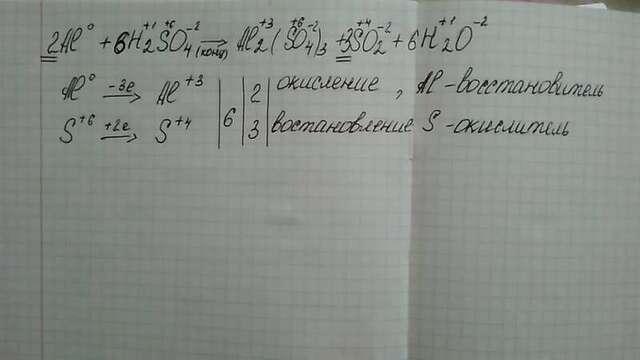 2Al⁰ + 6H₂⁺¹S⁺⁶O₄⁻²(конц) → Al₂⁺³(S⁺⁶O₄⁻²)₃ + 3S⁺⁴O₂⁻² + 6H₂⁺¹O⁻²
Al⁰ -3e→ Al⁺³ | 6 | 2 | окисление, Al-восстановитель
S⁺⁶ +2e→ S⁺⁴ | 3 | востановление S-окислитель